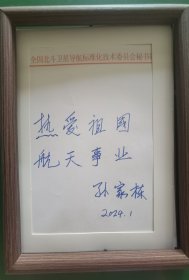 全国北斗卫星导航标准化技术委员会秘书处
热爱祖國
航天事业
孙家栋
2024.1